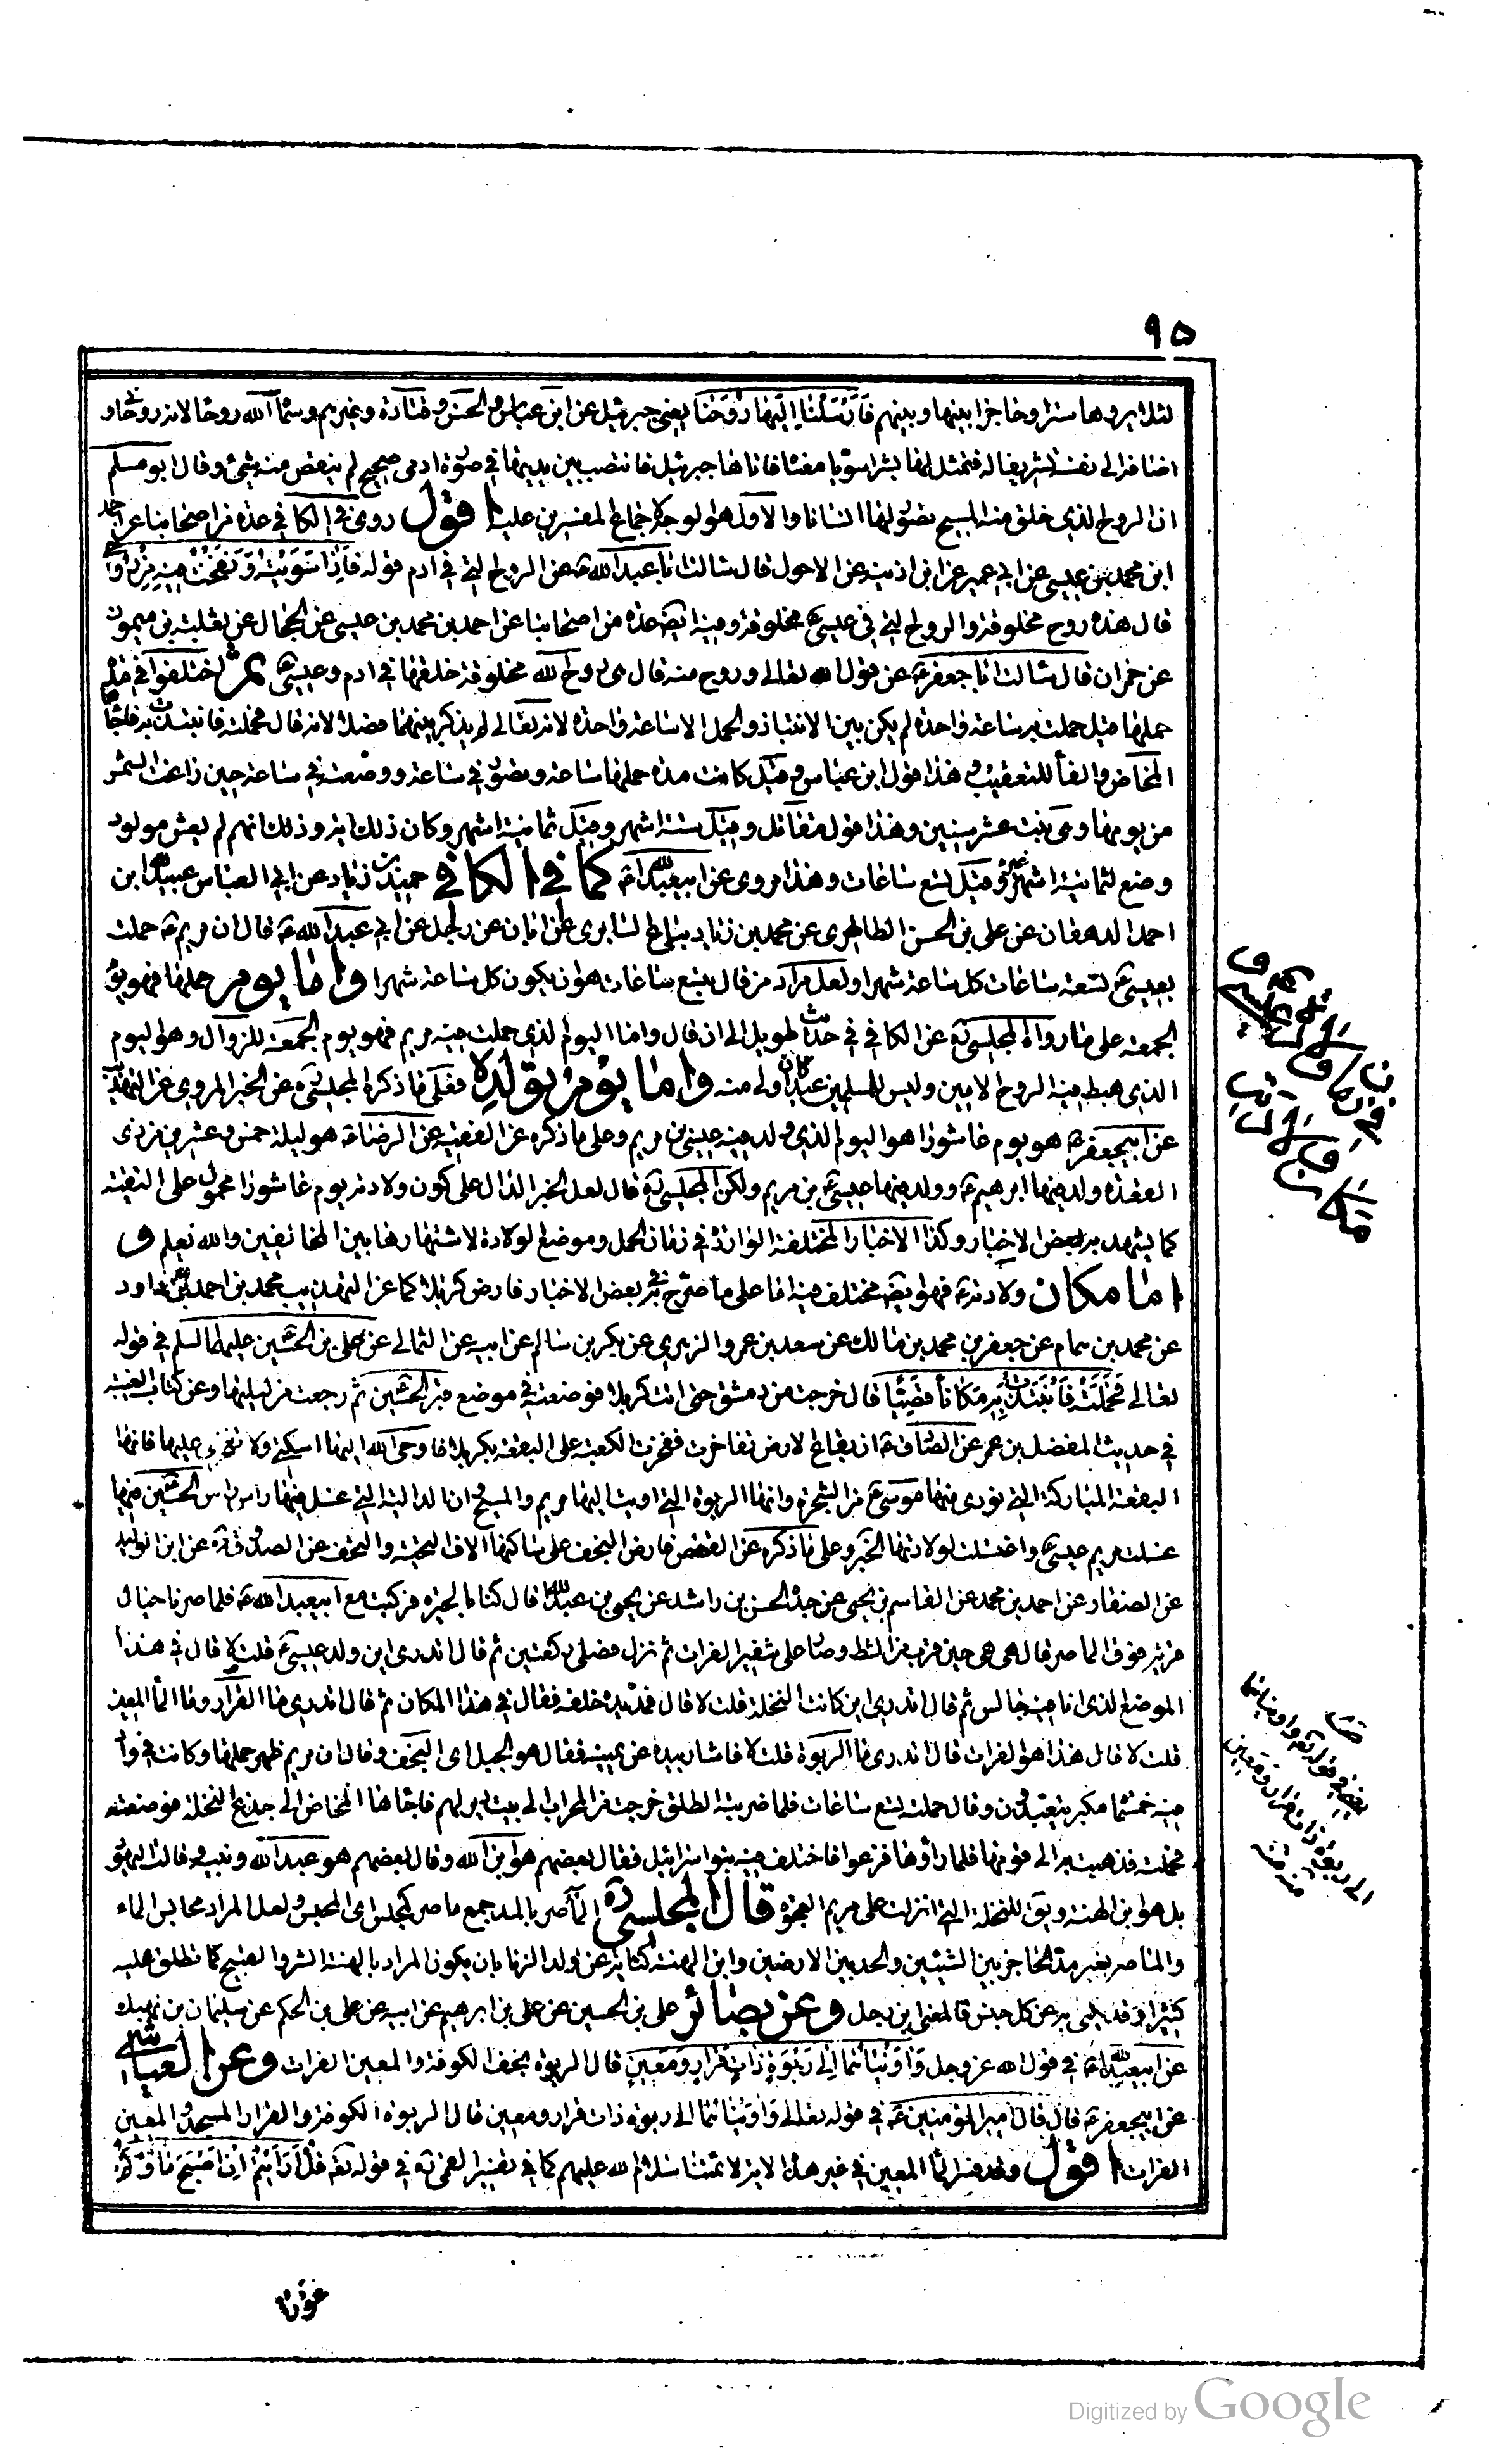 ٩٥
لئلا يروها سترا وحاجزا بينها وبينهم فَاَرْسَلْنا اِلَيْها رُوحَنا يعنى جبرئيل عن ابن عباس والحسن وقتادة وغيرهم وسماه الله روحا لانه روحانى و
اضافه الى نفسه تشريفا له فتمثل لها بشرا سويا معناه فاتاها جبرئيل فانتصب بين يديها فى صورة ادمى صحيح لم ينقص منه شىء وقال ابو مسلم
ان الروح الذى خلق منه المسيح تصور لها انسانا والاول هو الوجه لاجماع المفسرين عليه اقول روى فى الكافى عدة من اصحابنا عن احمد
ابن محمد بن عيسى عن ابن ابى عمير عن ابن اذينه عن الاحول قال سالت ابا عبد الله ع عن الروح التى فى ادم قوله فَاِذا سَوَّيْتُهُ وَنَفَخْتُ فيهِ مِنْ رُوحى
قال هذه روح مخلوقة والروح التى فى عيسى ع مخلوقة وفيه ايضا عدة من اصحابنا عن احمد بن محمد بن عيسى عن الحجال عن ثعلبة بن ميمون
عن حمران قال سالت ابا جعفر ع عن قول الله تعالى وروح منه قال هى روح الله مخلوقة خلقها فى ادم وعيسى ع ثمّ اختلفوا فى مدة
حملها قيل حملت به ساعة واحدة لم يكن بين الانتباذ والحمل الا ساعة واحدة لانه تعالى لم يذكر بينهما فصلا لانه قال فحملته فانتبذت به فاجائها
المخاض والفاء للتعقيب وهذا قول ابن عباس وقيل كانت مدة حملها ساعة وصور فى ساعة ووضعته فى ساعة حين زاغت الشمس
من يومها وهى بنت عشر سنين وهذا قول مقاتل وقيل ستة اشهر وقيل ثمانية اشهر وكان ذلك اية وذلك انهم لم يعش مولود
وضع لثمانية اشهر غيره وقيل تسع ساعات وهذا مروى عن ابيعبد الله ع كما فى الكافى حميد بن زياد عن ابى العباس عبيد الله ابن
احمد الدهقان عن على بن الحسن الطاطرى عن محمد بن زياد بياع السابرى عن ابان عن رجل عن ابى عبد الله ع قال ان مريم ع حملت
بعيسى ع تسعة ساعات كل ساعة شهرا ولعل مراد من قال بتسع ساعات هو ان يكون كل ساعة شهرا واما يوم حملها فهو يوم
الجمعة على ما رواه المجلسى ره عن الكافى فى حديث طويل الى ان قال واما اليوم الذى حملت فيه مريم فهو يوم الجمعة للزوال وهو اليوم
الذى هبط فيه الروح الامين وليس للمسلمين عيد كان اولى منه واما يوم تولده فعلى ما ذكره المجلسى ره عن الخبر المروى عن التهذيب
عن ابيجعفر ع هو يوم عاشورا هو اليوم الذى ولد فيه عيسى بن مريم وعلى ما ذكره عن الفقيه عن الرضا ع هو ليلة خمس وعشرين من ذى
القعدة ولد فيها ابرهيم ع وولد فيها عيسى ع بن مريم ولكن المجلسى ره قال لعل الخبر الدال على كون ولادته يوم عاشورا محمول على التقية
كما يشهد به بعض الاخبار وكذا الاخبار المختلفة الواردة فى زمان الحمل وموضع الولادة لاشتهارها بين المخالفين والله يعلم و
اما مكان ولادته ع فهو ايضا مختلف فيه اما على ما صرح به فى بعض الاخبار فارض كربلا كما عن التهذيب محمد بن احمد بن داود
عن محمد بن همام عن جعفر بن محمد بن مالك عن سعد بن عمرو الزهرى عن بكر بن سالم عن ابيه عن الثمالى عن على بن الحسين عليهما السلم فى قوله
تعالى فَحَمَلَتْهُ فَانْتَبَذَتْ بِهِ مَكاناً قَصِيًّا قال خرجت من دمشق حتى اتت كربلا فوضعته فى موضع قبر الحسين ثم رجعت من ليلتها وعن كتاب الغيبة
فى حديث المفضل بن عمر عن الصادق ع ان بقاع الارض تفاخرت ففخرت الكعبة على البقعة بكربلا فاوحى الله اليها اسكتى ولا تفخرى عليها فانها
البقعة المباركة التى نودى منها موسى ع من الشجرة وانها الربوة التى اويت اليها مريم والمسيح وان الدالية التى غسل فيها راس الحسين فيها
غسلت مريم عيسى ع واغتسلت لولادتها الخبر وعلى ما ذكره عن القصص فارض النجف على ساكنها الاف التحية والتحف عن الصدوق ره عن ابن الوليد
عن الصفار عن احمد بن محمد عن القاسم بن يحيى عن جده الحسن بن راشد عن يحيى بن عبد الله قال كنا بالحيرة فركبت مع ابيعبد الله ع فلما صرنا حيال
قرية فوق الماصر قال هى هى حين قرب من الشط وصار على شفير الفرات ثم نزل فصلى ركعتين ثم قال اتدرى اين ولد عيسى ع قلت لا قال فى هذا
الموضع الذى انا فيه جالس ثم قال اتدرى اين كانت النخلة قلت لا قال فمد يده خلفه فقال فى هذا المكان ثم قال اتدرى ما القرار وما الماء المعين
قلت لا قال هذا هو الفرات قال اتدرى ما الربوة قلت لا فاشار بيده عن يمينه فقال هو الجبل اى النجف وقال ان مريم ظهر حملها وكانت فى واد
فيه خمسمائة بكر يتعبدون وقال حملته تسع ساعات فلما ضربها الطلق خرجت من المحراب الى بيت دير لهم فاجائها المخاض الى جذع النخلة فوضعته
فحملته فذهبت به الى قومها فلما راوها فزعوا فاختلف فيه بنو اسرائيل فقال بعضهم هو ابن الله وقال بعضهم هو عبد الله ونبيه وقالت اليهود
بل هو ابن الهنة ويق للنخلة التى انزلت على مريم العجوة قال المجلسى ره المآصر بالمد جمع ماصر كمجلس اى المحبس ولعل المراد محابس الماء
والماصر بغير مد الحاجز بين الشيئين والحد بين الارضين وابن الهنة كناية عن ولد الزنا بان يكون المراد بالهنة الشر والقبيح كما تطلق عليه
كثيرا وقد يكنى به عن كل جنس فالمعنى ابن رجل وعن بصائر على بن الحسين عن على بن ابرهيم عن ابيه عن على بن الحكم عن سليمان بن نهيك
عن ابيعبد الله ع فى قول الله عز وجل وَاوَيْناهُما اِلى رَبْوَةٍ ذاتِ قَرارٍ وَمَعينٍ قال الربوة نجف الكوفة والمعين الفرات وعن العياشى
عن ابيجعفر ع قال قال امير المؤمنين ع فى قوله تعالى وَاوَيْناهُما الى ربوة ذات قرار ومعين قال الربوة الكوفة والقرار المسجد والمعين
الفرات اقول وقد فسر الماء المعين فى غير هذه الاية لائمتنا سلام الله عليهم كما فى تفسير القمى ره فى قوله تع قُلْ اَرَاَيْتُمْ اِنْ اَصْبَحَ ماؤُكُمْ
غورا
Digitized by Google